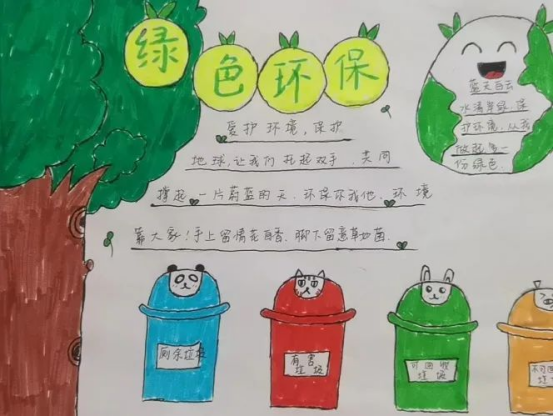 绿色环保
爱护环境,保护
地球,让我们托起双手,共同
撑起一片蔚蓝的天.环保你我他.环境
靠大家!手上留情花自香.脚下留意草如茵.
蓝天白云
水清岸绿.保
护环境.从我
做起第一
份绿色.
厨余垃圾
有害
垃圾
可回收
垃圾
不可回
垃